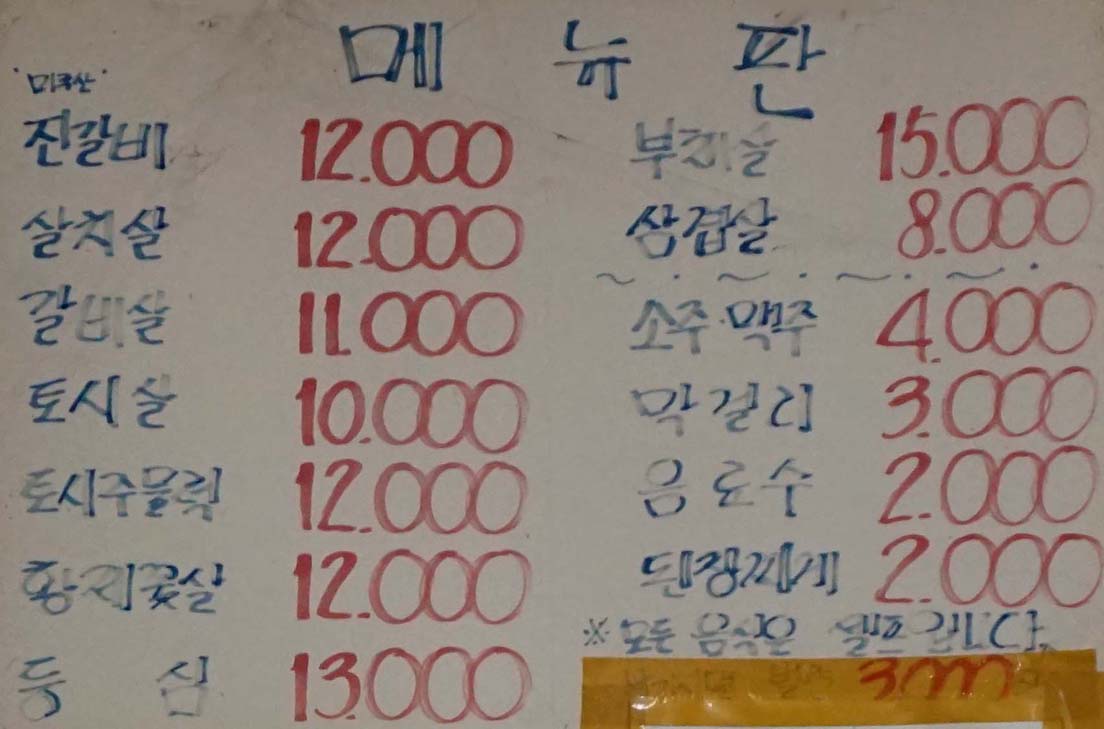 메뉴판
'미국산'
진갈비 12.000
살치살 12.000
갈비살 11.000
토시살 10.000
토시주물럭 12.000
황제꽃살 12.000
등심 13.000
부채살 15.000
삼겹살 8.000
소주·맥주 4.000
막걸리 3.000
음료수 2.000
된장찌게 2.000
※ 모든 음식은 셀프 입니다.
3000